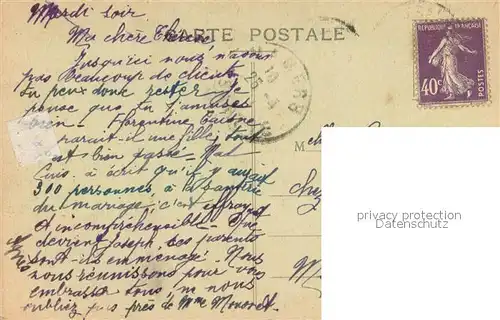 Mardi soir
CARTE POSTALE
Ma chère Thérèse
Jusqu'ici nous n'avons
pas Beaucoup de clients
tu peux donc rester. Je
pense que tu t'amuses
bien - Florentine
parait-il une fille, tout
est bien passé -
a écrit qu'il y avait
300 personnes, à la
du mariage, c'est effrayant
et incompréhensible - Que
devient Joseph, ses parents
sont-ils emménagé. Nous
nous réunissons pour vous
embrasser tous, ne nous
oubliez pas près de Mme
REPUBLIQUE FRANÇAISE
40c
POSTES
M
chez
privacy protection
Datenschutz